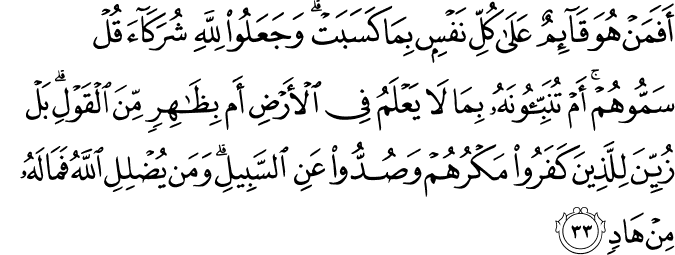 أَفَمَنْ هُوَ قَآئِمٌ عَلَىٰ كُلِّ نَفْسٍۭ بِمَا كَسَبَتْ ۗ وَجَعَلُوا۟ لِلَّهِ شُرَكَآءَ قُلْ
سَمُّوهُمْ ۚ أَمْ تُنَبِّـُٔونَهُۥ بِمَا لَا يَعْلَمُ فِى ٱلْأَرْضِ أَم بِظَـٰهِرٍ مِّنَ ٱلْقَوْلِ ۗ بَلْ
زُيِّنَ لِلَّذِينَ كَفَرُوا۟ مَكْرُهُمْ وَصُدُّوا۟ عَنِ ٱلسَّبِيلِ ۗ وَمَن يُضْلِلِ ٱللَّهُ فَمَا لَهُۥ
مِنْ هَادٍ ٣٣